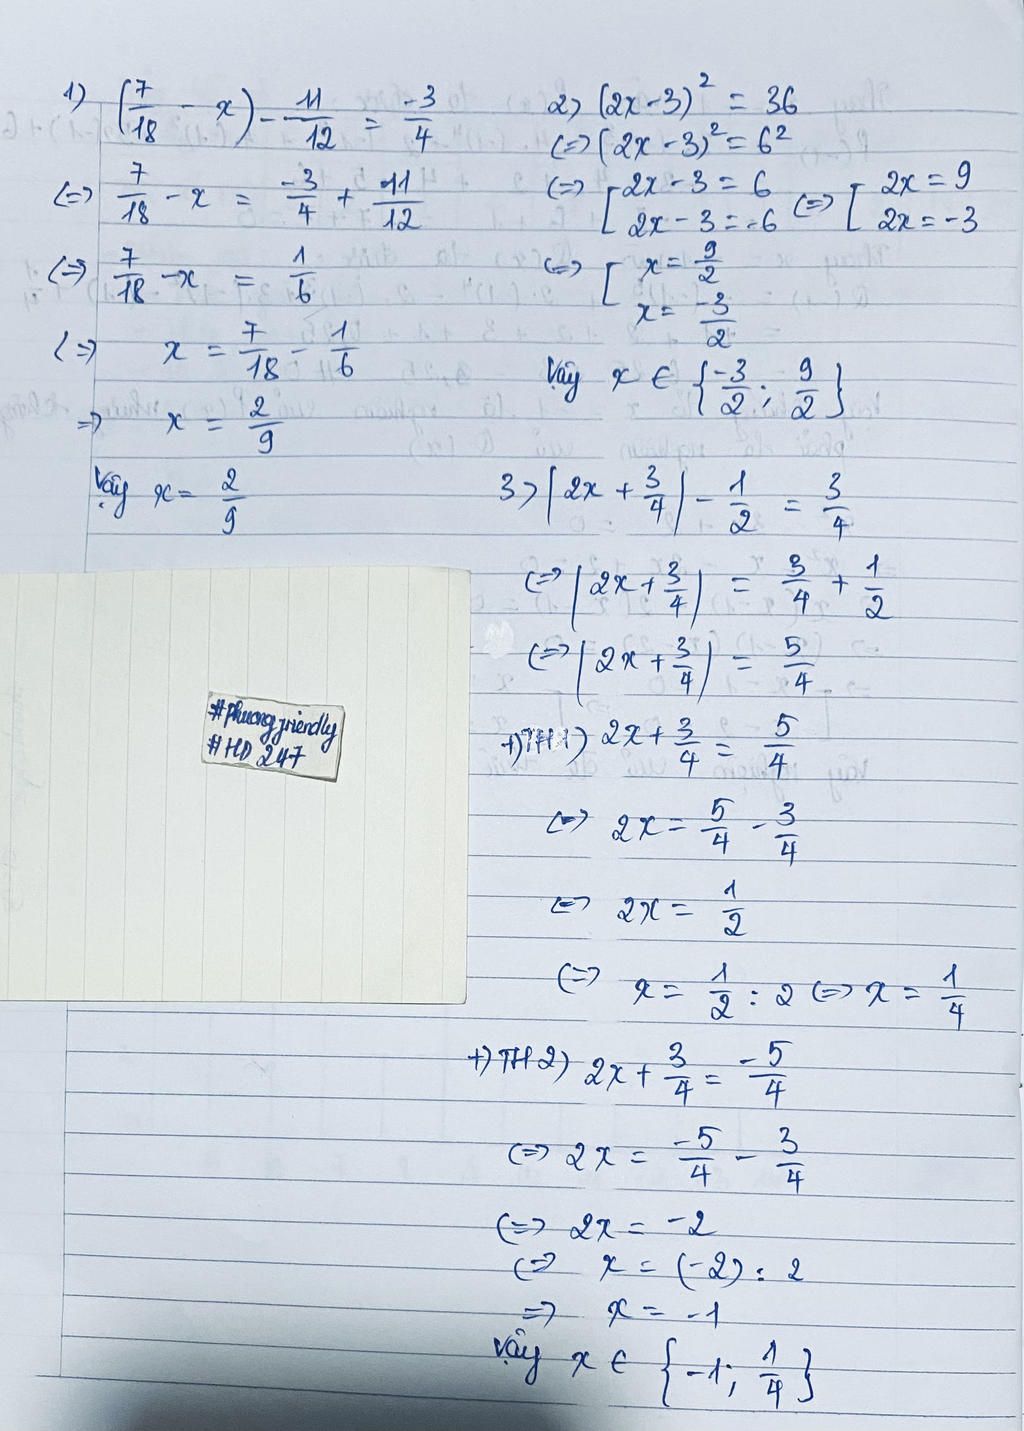 1) (7/18 - x) - 11/12 = -3/4
<=> 7/18 - x = -3/4 + 11/12
<=> 7/18 - x = 1/6
<=> x = 7/18 - 1/6
=> x = 2/9
Vậy x = 2/9
2) (2x-3)² = 36
<=> (2x-3)² = 6²
<=> [ 2x-3 = 6 <=> [ 2x = 9
2x-3 = -6 2x = -3
<=> [ x = 9/2
x = -3/2
Vậy x ∈ {-3/2; 9/2}
3) |2x + 3/4| - 1/2 = 3/4
<=> |2x + 3/4| = 3/4 + 1/2
<=> |2x + 3/4| = 5/4
+) TH1) 2x + 3/4 = 5/4
<=> 2x = 5/4 - 3/4
<=> 2x = 1/2
<=> x = 1/2 : 2 <=> x = 1/4
+) TH2) 2x + 3/4 = -5/4
<=> 2x = -5/4 - 3/4
<=> 2x = -2
<=> x = (-2) : 2
=> x = -1
Vậy x ∈ {-1; 1/4}
#phuongfriendly
#HD 247